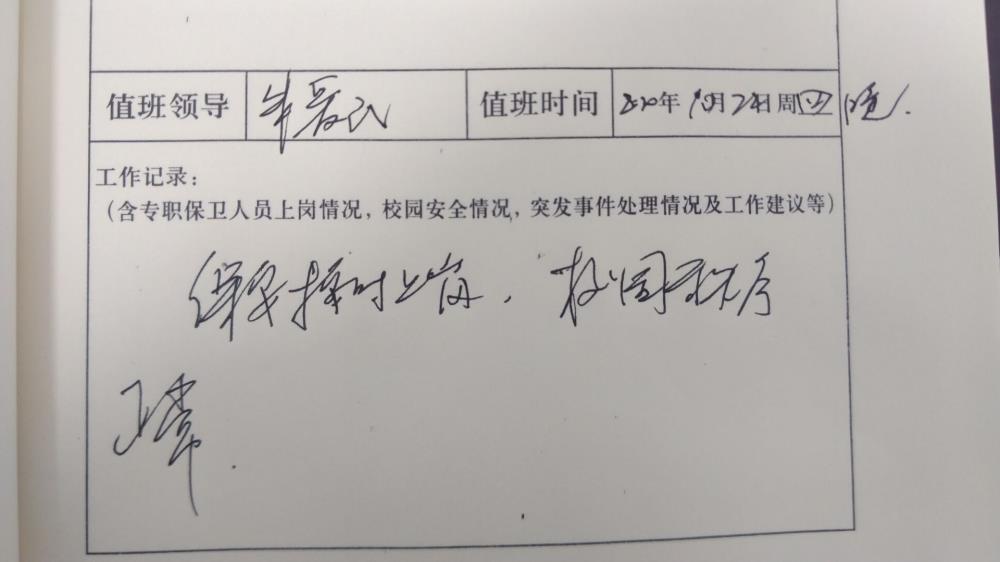 值班领导 牛爱民 值班时间 2020年10月日周四晚.
工作记录:
(含专职保卫人员上岗情况,校园安全情况,突发事件处理情况及工作建议等)
保安按时上岗,校园秩序
正常.